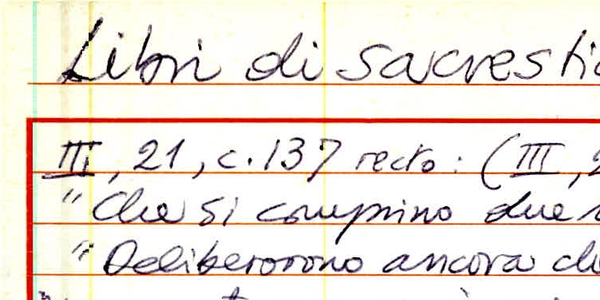 Libri di sacresti
III, 21, c. 137 recto: (III, 2
"Che si comprino due
"Deliberorono ancora ch